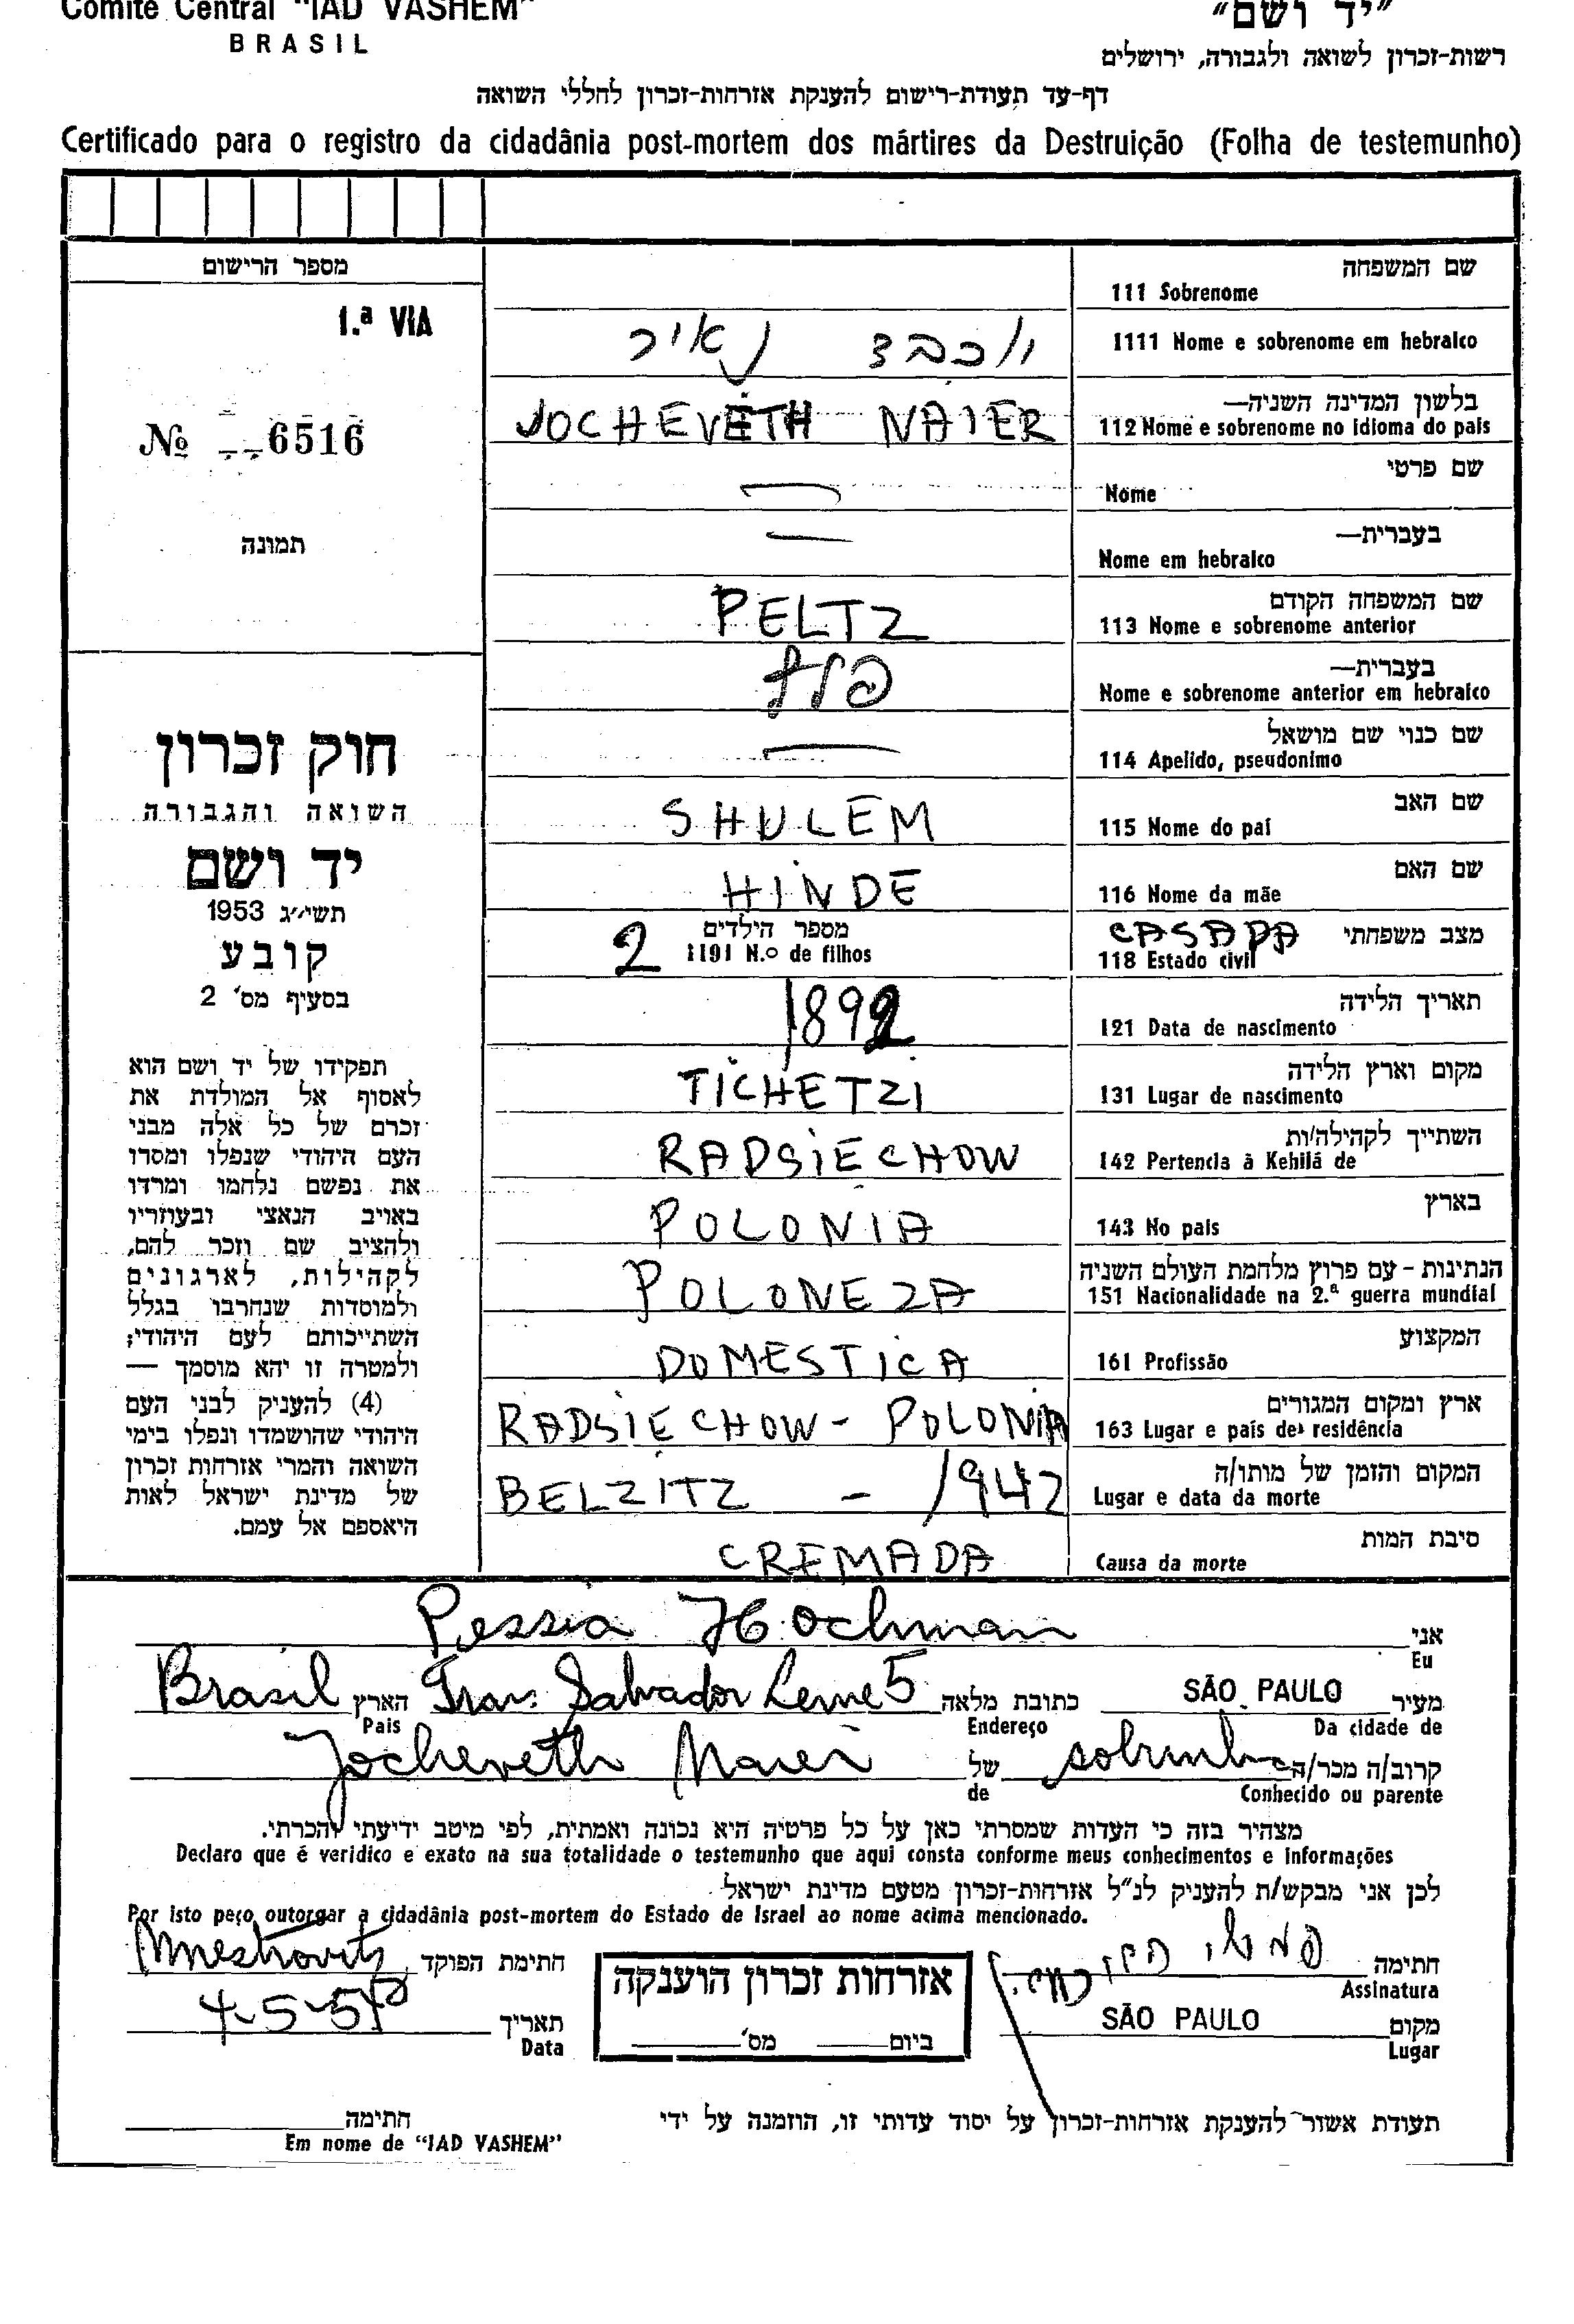 Comité Central "IAD VASHEM"
BRASIL
"יד ושם"
רשות-זכרון לשואה ולגבורה, ירושלים
דף-עד תעודת-רישום להענקת אזרחות-זכרון לחללי השואה
Certificado para o registro da cidadânia post-mortem dos mártires da Destruição (Folha de testemunho)
מספר הרישום
1.ª VIA
№ 6516
תמונה
חוק זכרון
השואה והגבורה
יד ושם
תשי״ג 1953
קובע
בסעיף מס׳ 2
תפקידו של יד ושם הוא
לאסוף אל המולדת את
זכרם של כל אלה מבני
העם היהודי שנפלו ומסרו
את נפשם נלחמו ומרדו
באויב הנאצי ובעוזריו
ולהציב שם וזכר להם,
לקהילות, לארגונים
ולמוסדות שנחרבו בגלל
השתייכותם לעם היהודי;
ולמטרה זו יהא מוסמך —
(4) להעניק לבני העם
היהודי שהושמדו ונפלו בימי
השואה והמרי אזרחות זכרון
של מדינת ישראל לאות
היאספם אל עמם.
שם המשפחה
111 Sobrenome
1111 Nome e sobrenome em hebraico
בלשון המדינה השניה—
112 Nome e sobrenome no idioma do pais JOCHEVETH NAIER
שם פרטי
Nome —
בעברית—
Nome em hebraico —
שם המשפחה הקודם
113 Nome e sobrenome anterior PELTZ
בעברית—
Nome e sobrenome anterior em hebraico פלץ
שם כנוי שם מושאל
114 Apelido, pseudonimo —
שם האב
115 Nome do pai SHULEM
שם האם
116 Nome da mãe HINDE
מצב משפחתי CASADA
118 Estado civil
מספר הילדים
1191 N.º de filhos 2
תאריך הלידה
121 Data de nascimento 1892
מקום וארץ הלידה
131 Lugar de nascimento TICHETZI
השתייך לקהילה/ות
142 Pertencia à Kehilá de RADSIECHOW
בארץ
143 No pais POLONIA
הנתינות - עם פרוץ מלחמת העולם השניה
151 Nacionalidade na 2.ª guerra mundial POLONEZA
המקצוע
161 Profissão DOMESTICA
ארץ ומקום המגורים
163 Lugar e país de residência RADSIECHOW - POLONIA
המקום והזמן של מותו/ה
Lugar e data da morte BELZITZ - 1942
סיבת המות
Causa da morte CREMADA
אני Pessia Hochman
Eu
מעיר SÃO PAULO כתובת מלאה Trav. Salvador Leme 5 הארץ Brasil
Da cidade de Endereço Pais
קרוב/ה מכר/ה sobrinha של Jocheveth Naier
Conhecido ou parente de
מצהיר בזה כי העדות שמסרתי כאן על כל פרטיה היא נכונה ואמתית, לפי מיטב ידיעתי והכרתי.
Declaro que é veridico e exato na sua totalidade o testemunho que aqui consta conforme meus conhecimentos e informações
לכן אני מבקש/ת להעניק לנ״ל אזרחות-זכרון מטעם מדינת ישראל
Por isto peço outorgar a cidadânia post-mortem do Estado de Israel ao nome acima mencionado.
חתימה
Assinatura
חתימת הפוקד
אזרחות זכרון הוענקה
ביום מס׳
מקום SÃO PAULO
Lugar
תאריך
Data
תעודת אשור להענקת אזרחות-זכרון על יסוד עדותי זו, הוזמנה על ידי
חתימה
Em nome de "IAD VASHEM"